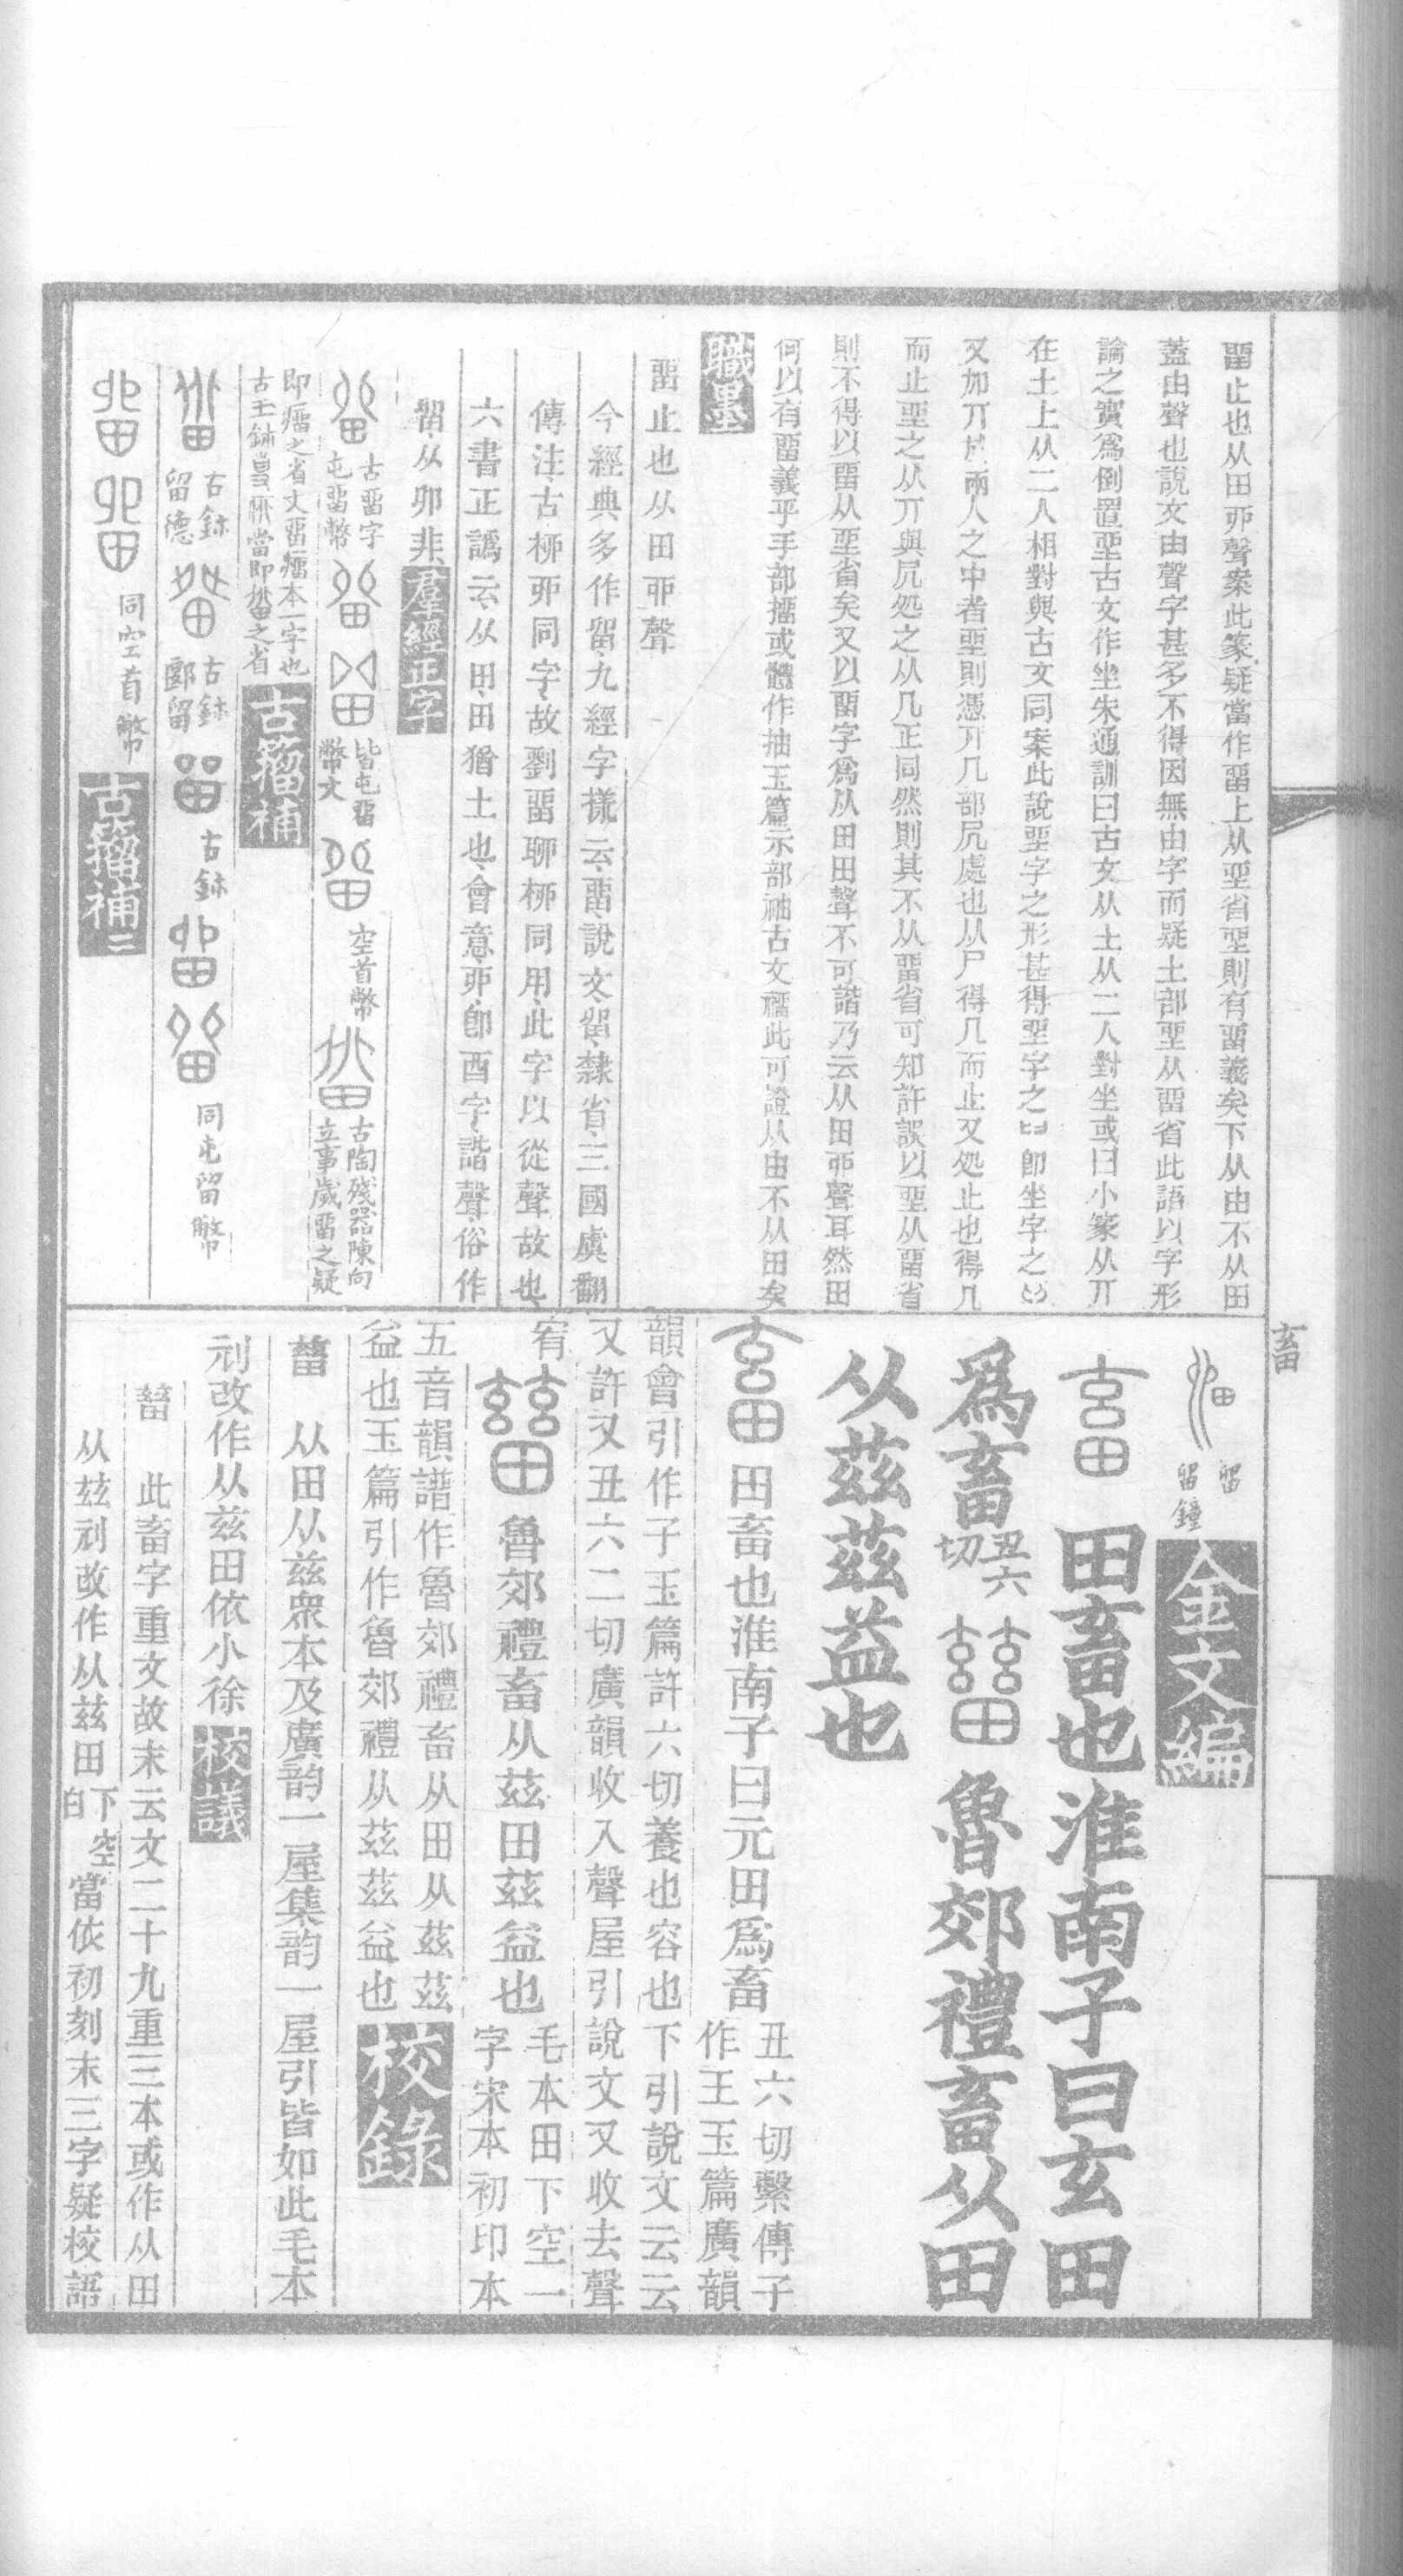 畱止也从田丣聲案此篆疑當作畱上从坙省坙則有畱義矣下从由不从田
蓋由聲也說文由聲字甚多不得因無由字而疑土部坙从畱省此語以字形
論之實爲倒置坙古文作坐朱通訓曰古文从土从二人對坐或曰小篆从丌
在土上从二人相對與古文同案此說坙字之形甚得坙字之卽坐字之
又加丌於兩人之中者坙則憑丌几部凥處也从尸得几而止又処止也得几
而止坙之从丌與凥処之从几正同然則其不从畱省可知許誤以坙从畱省
則不得以畱从坙省矣又以畱字爲从田田聲不可諧乃云从田丣聲耳然田
何以有畱義乎手部擂或體作抽玉篇示部䄂古文禷此可證从由不从田矣
職墨
畱止也从田丣聲
今經典多作留九經字樣云畱說文留隸省三國虞翻
傳注古桺丣同字故劉畱聊桺同用此字以從聲故也
六書正譌云从田田猶土也會意丣卽酉字諧聲俗作
留从卯非羣經正字
古畱字
屯畱幣
皆屯畱
幣文
空首幣
古陶殘器陳向
立事歲畱之疑
卽癅之省文畱癅本一字也
古籀補
古鉢
留德
古鉢
酈留
古鉢
同屯留幣
同空首幣
古籀補二
畜
留
留鐘
金文編
田畜也淮南子曰玄田
爲畜丑六切
魯郊禮畜从田
从茲茲益也
田畜也淮南子曰元田爲畜
丑六切繫傳子
作王玉篇廣韻
韻會引作子玉篇許六切養也容也下引說文云云
又許又丑六二切廣韻收入聲屋引說文又收去聲
宥
魯郊禮畜从茲田茲益也
毛本田下空一
字宋本初印本
五音韻譜作魯郊禮畜从田从茲茲
益也玉篇引作魯郊禮从茲茲益也
校錄
从田从兹衆本及廣韵一屋集韵一屋引皆如此毛本
刓改作从兹田依小徐校議
此畜字重文故末云文二十九重三本或作从田
从玆刓改作从玆田下空白當依初刻末三字疑校語